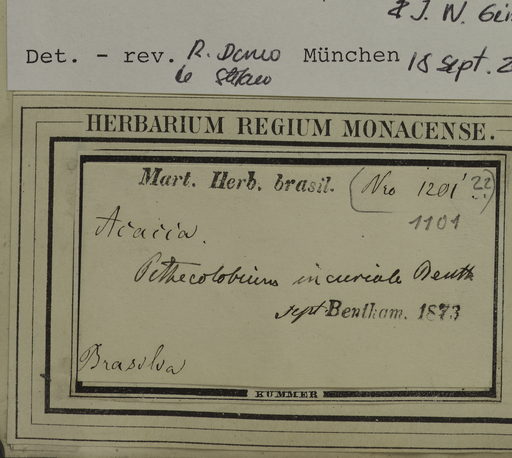 & J. W.
Det. - rev. R. Dano München 18 sept. 2
HERBARIUM REGIUM MONACENSE.
Mart. Herb. brasil. (Nro 1201 ??)
1101
Acacia.
Pithecolobium incuriale Benth
sept Bentham. 1873
Brasilia
KUMMER